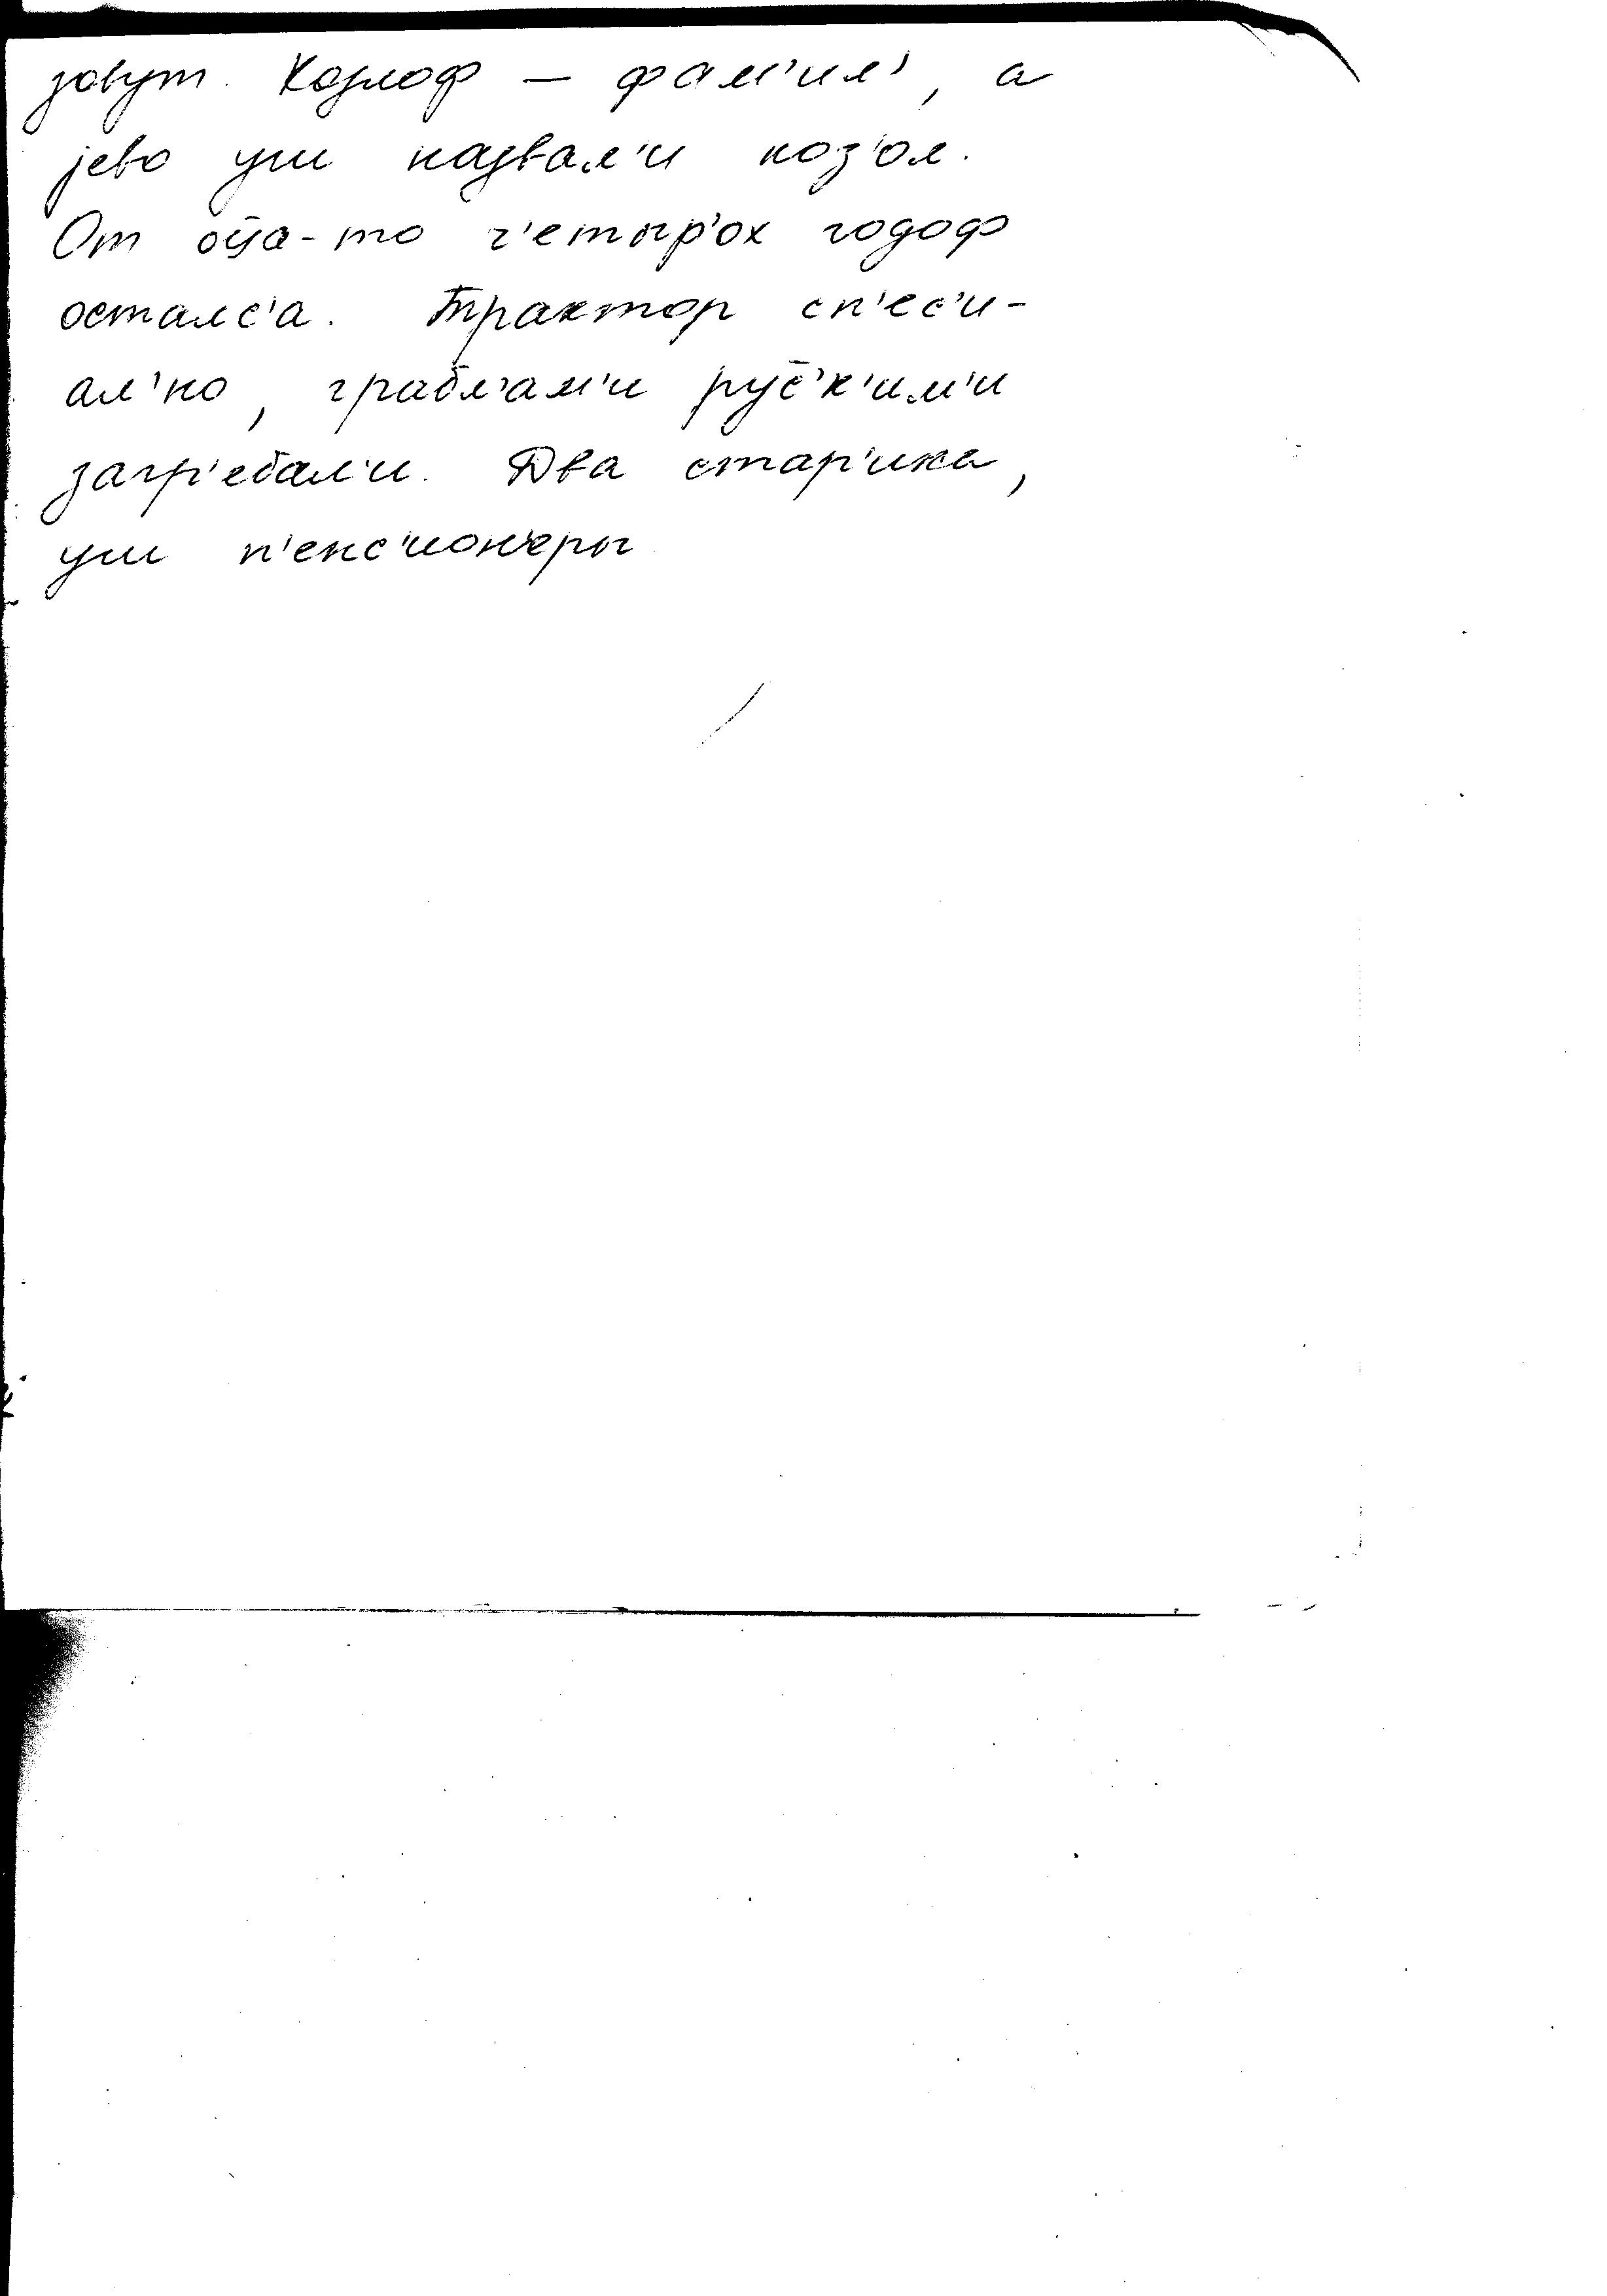 зовут. Козлоф – фам'ил', а
јево уш назвал'и коз'ол.
От оўца-то ч'етыр'ох годоф
осталс'а. Трактор сп'ес'и-
ал'но, грабл'ам'и рус̄'к'им'и
загр'ебал'и. Два стар'ика,
уш п'енс'ион'еры